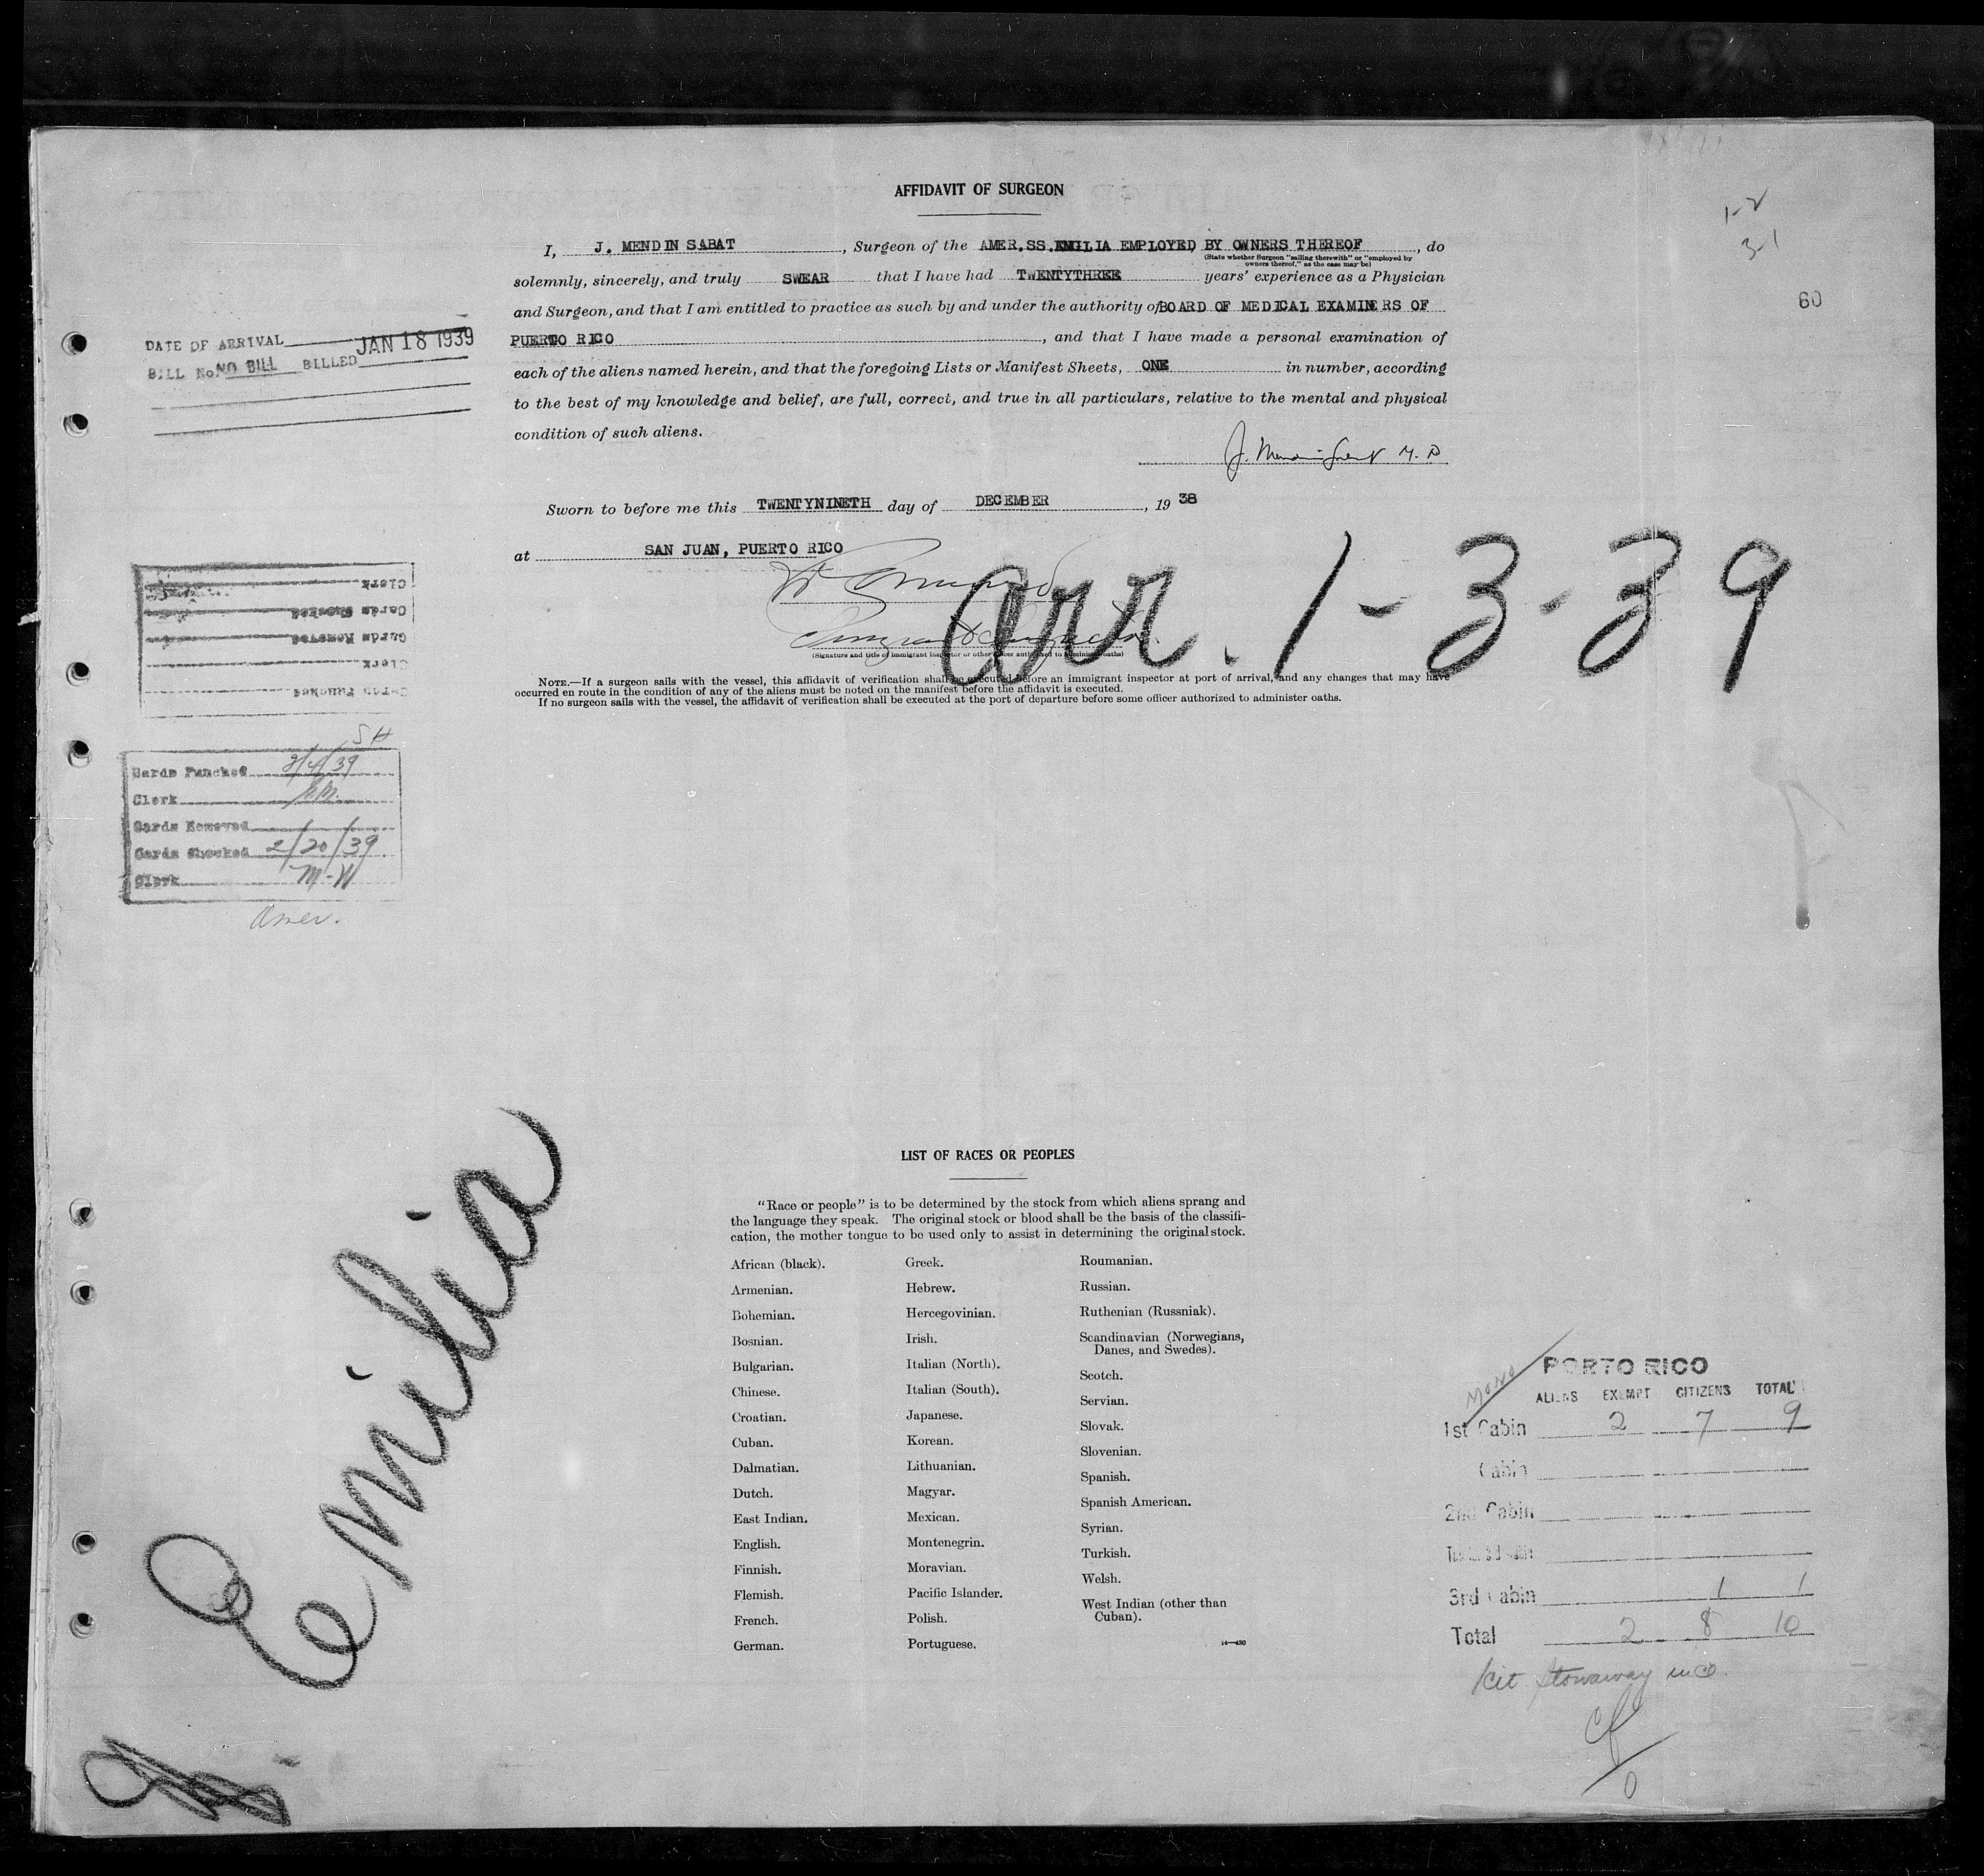 AFFIDAVIT OF SURGEON
I, J. MENDIN SABAT, Surgeon of the AMER.SS. EMILIA EMPLOYED BY OWNERS THEREOF, do
(State whether Surgeon "sailing therewith" or "employed by
owners thereof," as the case may be)
solemnly, sincerely, and truly SWEAR that I have had TWENTYTHREE years' experience as a Physician
and Surgeon, and that I am entitled to practice as such by and under the authority of BOARD OF MEDICAL EXAMINERS OF
PUERTO RICO, and that I have made a personal examination of
each of the aliens named herein, and that the foregoing Lists or Manifest Sheets, ONE in number, according
to the best of my knowledge and belief, are full, correct, and true in all particulars, relative to the mental and physical
condition of such aliens.
M. D
Sworn to before me this TWENTYNINETH day of DECEMBER, 19 38
at SAN JUAN, PUERTO RICO
(Signature and title of immigrant inspector or other officer authorized to administer oaths)
NOTE.—If a surgeon sails with the vessel, this affidavit of verification shall be executed before an immigrant inspector at port of arrival, and any changes that may have
occurred en route in the condition of any of the aliens must be noted on the manifest before the affidavit is executed.
If no surgeon sails with the vessel, the affidavit of verification shall be executed at the port of departure before some officer authorized to administer oaths.
arr. 1-3-39
1-2
3-1
60
DATE OF ARRIVAL JAN 18 1939
BILL No. NO BILL BILLED
Clerk
Cards Checked
Cards Removed
Clerk
Cards Punched
SH
Cards Punched 2/4/39
Clerk
Cards Removed
Cards Checked 2/20/39
Clerk M-W
Amer.
Emilia
LIST OF RACES OR PEOPLES
"Race or people" is to be determined by the stock from which aliens sprang and
the language they speak. The original stock or blood shall be the basis of the classifi-
cation, the mother tongue to be used only to assist in determining the original stock.
African (black).
Armenian.
Bohemian.
Bosnian.
Bulgarian.
Chinese.
Croatian.
Cuban.
Dalmatian.
Dutch.
East Indian.
English.
Finnish.
Flemish.
French.
German.
Greek.
Hebrew.
Hercegovinian.
Irish.
Italian (North).
Italian (South).
Japanese.
Korean.
Lithuanian.
Magyar.
Mexican.
Montenegrin.
Moravian.
Pacific Islander.
Polish.
Portuguese.
Roumanian.
Russian.
Ruthenian (Russniak).
Scandinavian (Norwegians,
Danes, and Swedes).
Scotch.
Servian.
Slovak.
Slovenian.
Spanish.
Spanish American.
Syrian.
Turkish.
Welsh.
West Indian (other than
Cuban).
14—430
PORTO RICO
ALIENS EXEMPT CITIZENS TOTAL
1st Cabin 2 7 9
Cabin
2nd Cabin
3rd Cabin 1 1
Total 2 8 10
stowaway